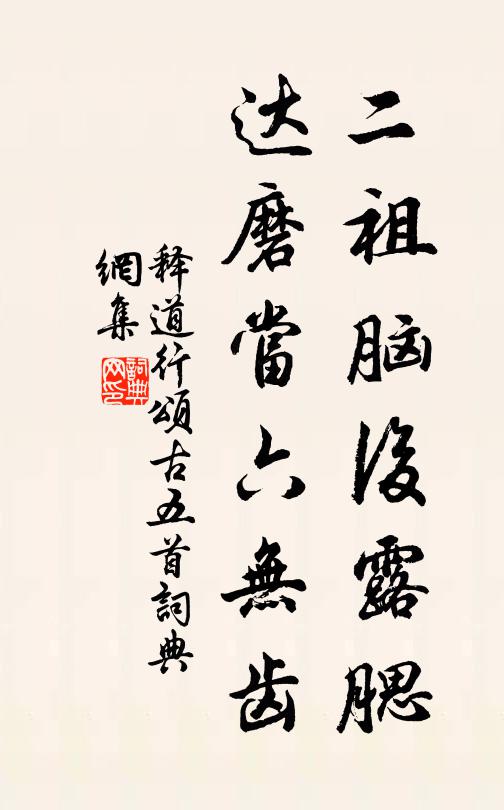 二祖脑後露腮
达磨當六無齿
释道行頌古五首詞典
網集
詞典
网印